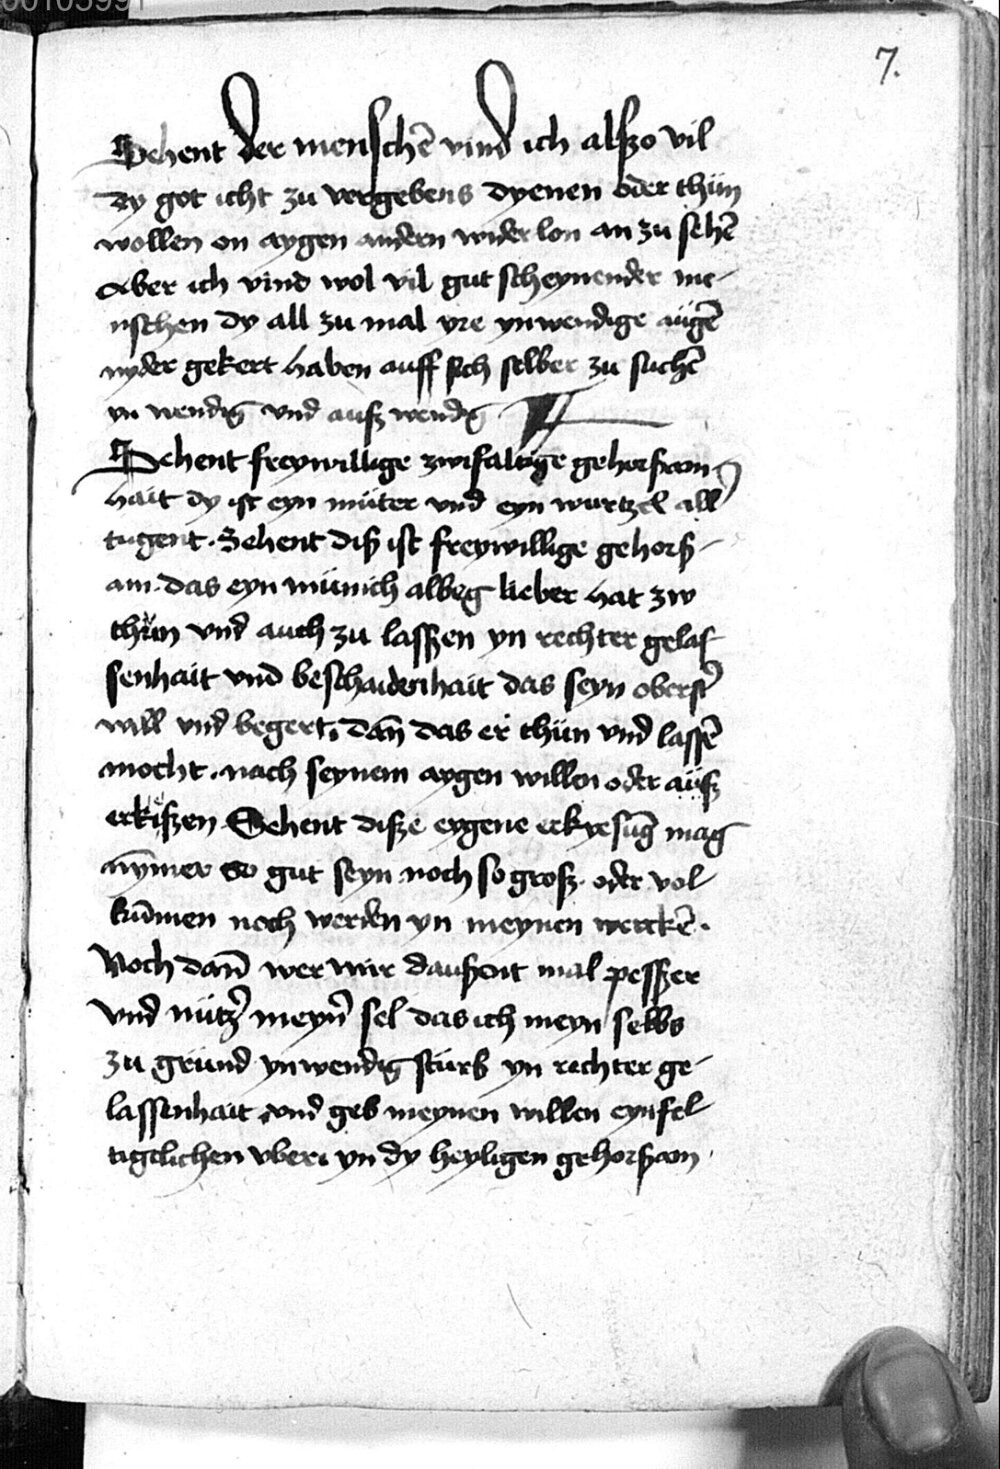 00103991
7.
Sehent der menschē vind ich alszo vil
dy got icht zu vergebens dyenen oder thün
wollen on aygen andern wider lon an zu sehē
Aber ich vind wol vil gut scheynender me-
nschen dy all zu mal yre ynwendige augē
nyder gekert haben auff sich selber zu suchē
yn wendig vnd ausz wendig
Sehent freywillige zwifaltige gehorsam
hait dy ist eyn müter vnd eyn wurtzel all
tugent. Sehent disz ist freywillige gehors-
am. das eyn münich albeg lieber hat zw
thün vnd auch zu lasszen yn rechter gelas-
senhait vnd beschaidenhait das seyn oberst
will vnd begert, dan̄ das er thün vnd lassē
mocht. nach seynem aygen willen oder ausz
erkiszen Sehent disze eygene erkyesūg mag
nȳmer so gut seyn noch so grosz. oder vol-
kūmen noch werden yn meynen werckē.
Noch dan̄ wer mir dauszent mal pesszer
vnd nütz meyn̄ sel das ich meyn selbs
zu grund ynwendig sturb yn rechter ge-
lassenhait vnd geb meynen willen eynfel-
tigclichen vber yn dy heyligen gehorszam